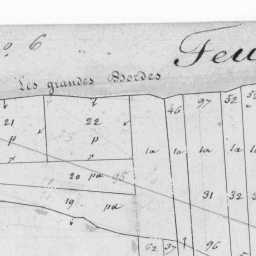 o. 6
Feu
Les grandes Bordes
21
22
46
97
32
32
p
p
la
la
la
la
20 pa 95
19 pa
31
32
62
37
1
96